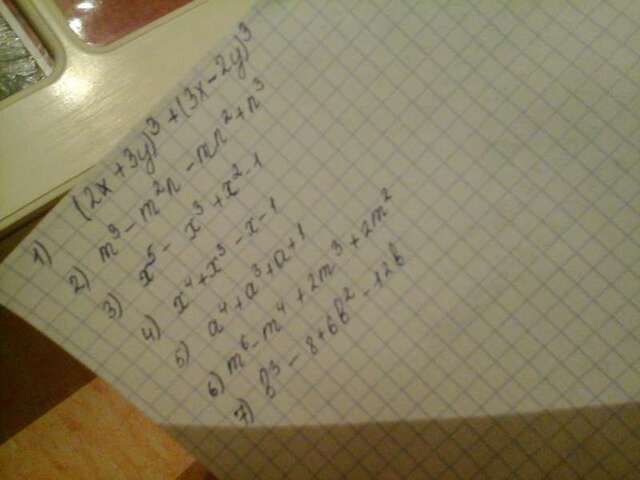 1) (2x+3y)³+(3x-2y)³
2) m³-m²n-mn²+n³
3) x⁵-x³+x²-1
4) x⁴+x³-x-1
5) a⁴+a³+a+1
6) m⁶-m⁴+2m³+2m²
7) b³-8+6b²-12b